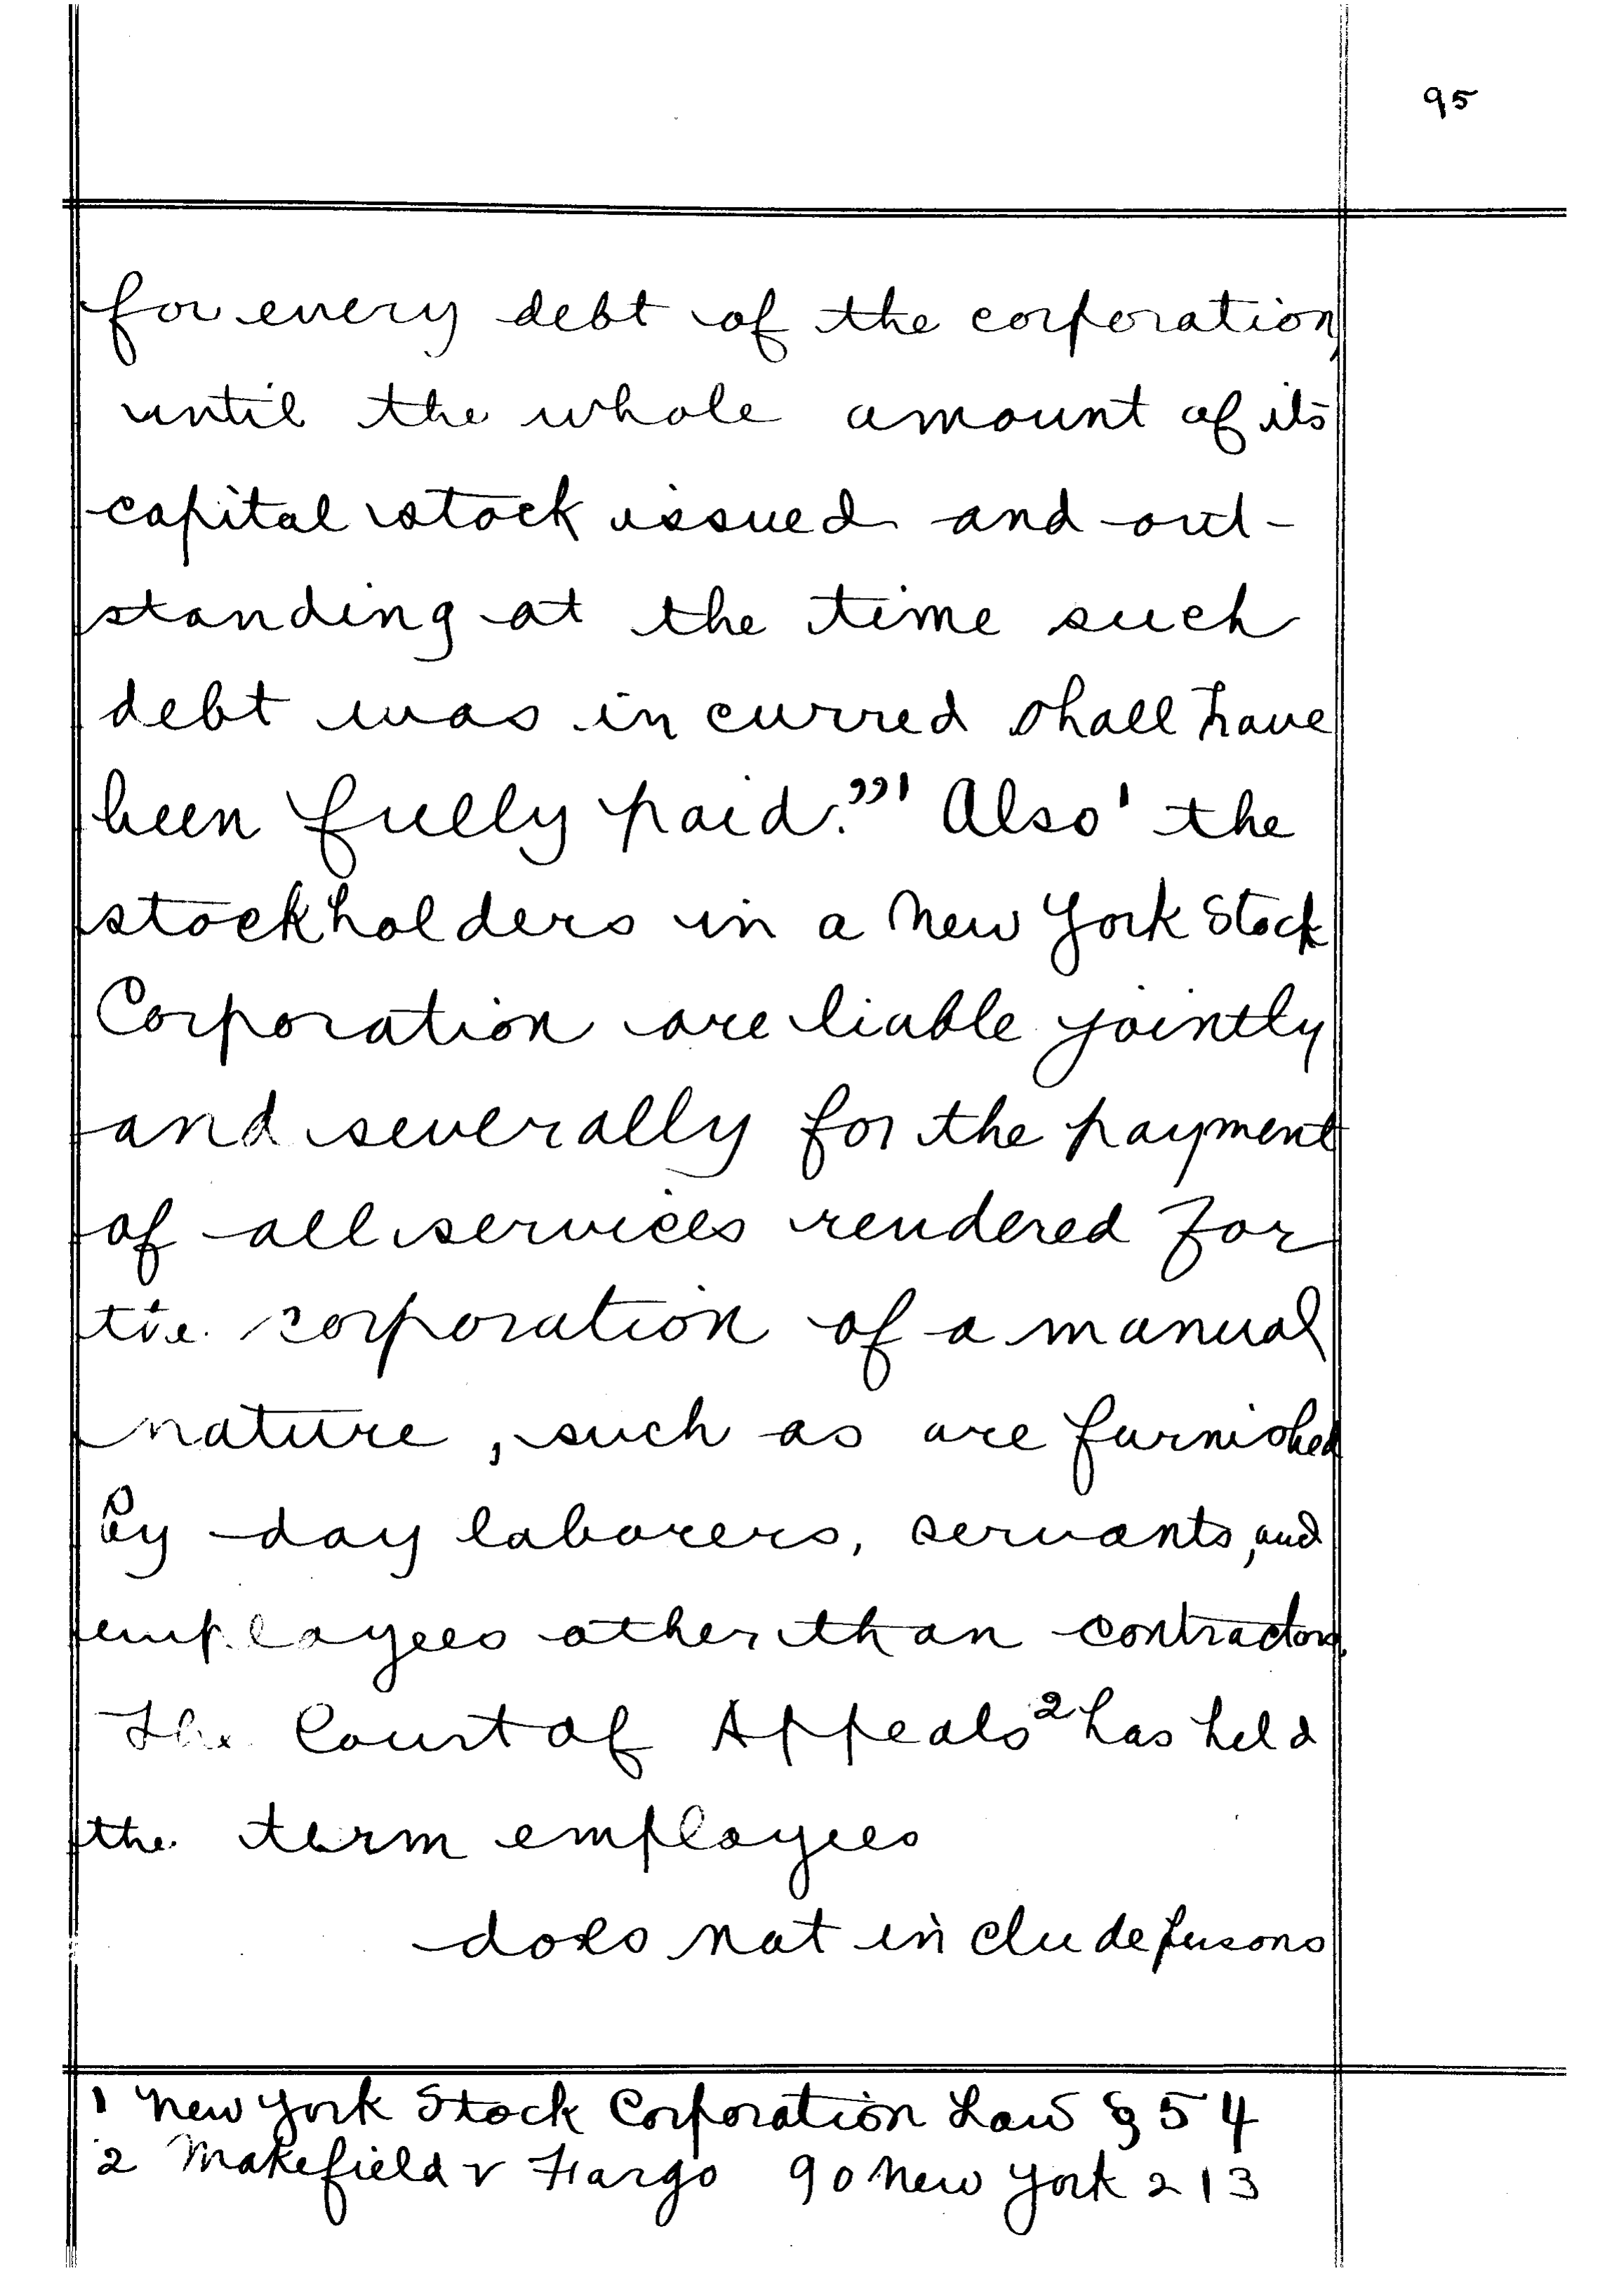 95
for every debt of the corporation,
until the whole amount of its
capital stock issued and out-
standing at the time such
debt was incurred shall have
been fully paid."¹ Also¹ the
stockholders in a New York Stock
Corporation are liable jointly
and severally for the payment
of all services rendered for
the corporation of a manual
nature, such as are furnished
by day laborers, servants, and
employees other than contractors.
The Court of Appeals² has held
the term employees
does not include persons
1 New York Stock Corporation Law § 54
2 Makefield v Fargo 90 New York 213